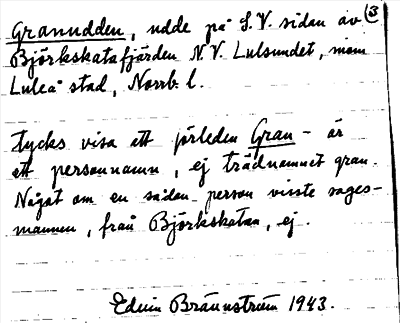 Granudden, udde på S.V. sidan av ③
Björkskatafjärden N.V. Lulsundet, inom
Luleå stad, Norrb. l.
tycks visa ett förleden Gran - är
ett personnamn, ej trädnamnet gran.
Något om en sådan person visste sages-
mannen, från Björkskatan, ej.
Edvin Brännström 1943.